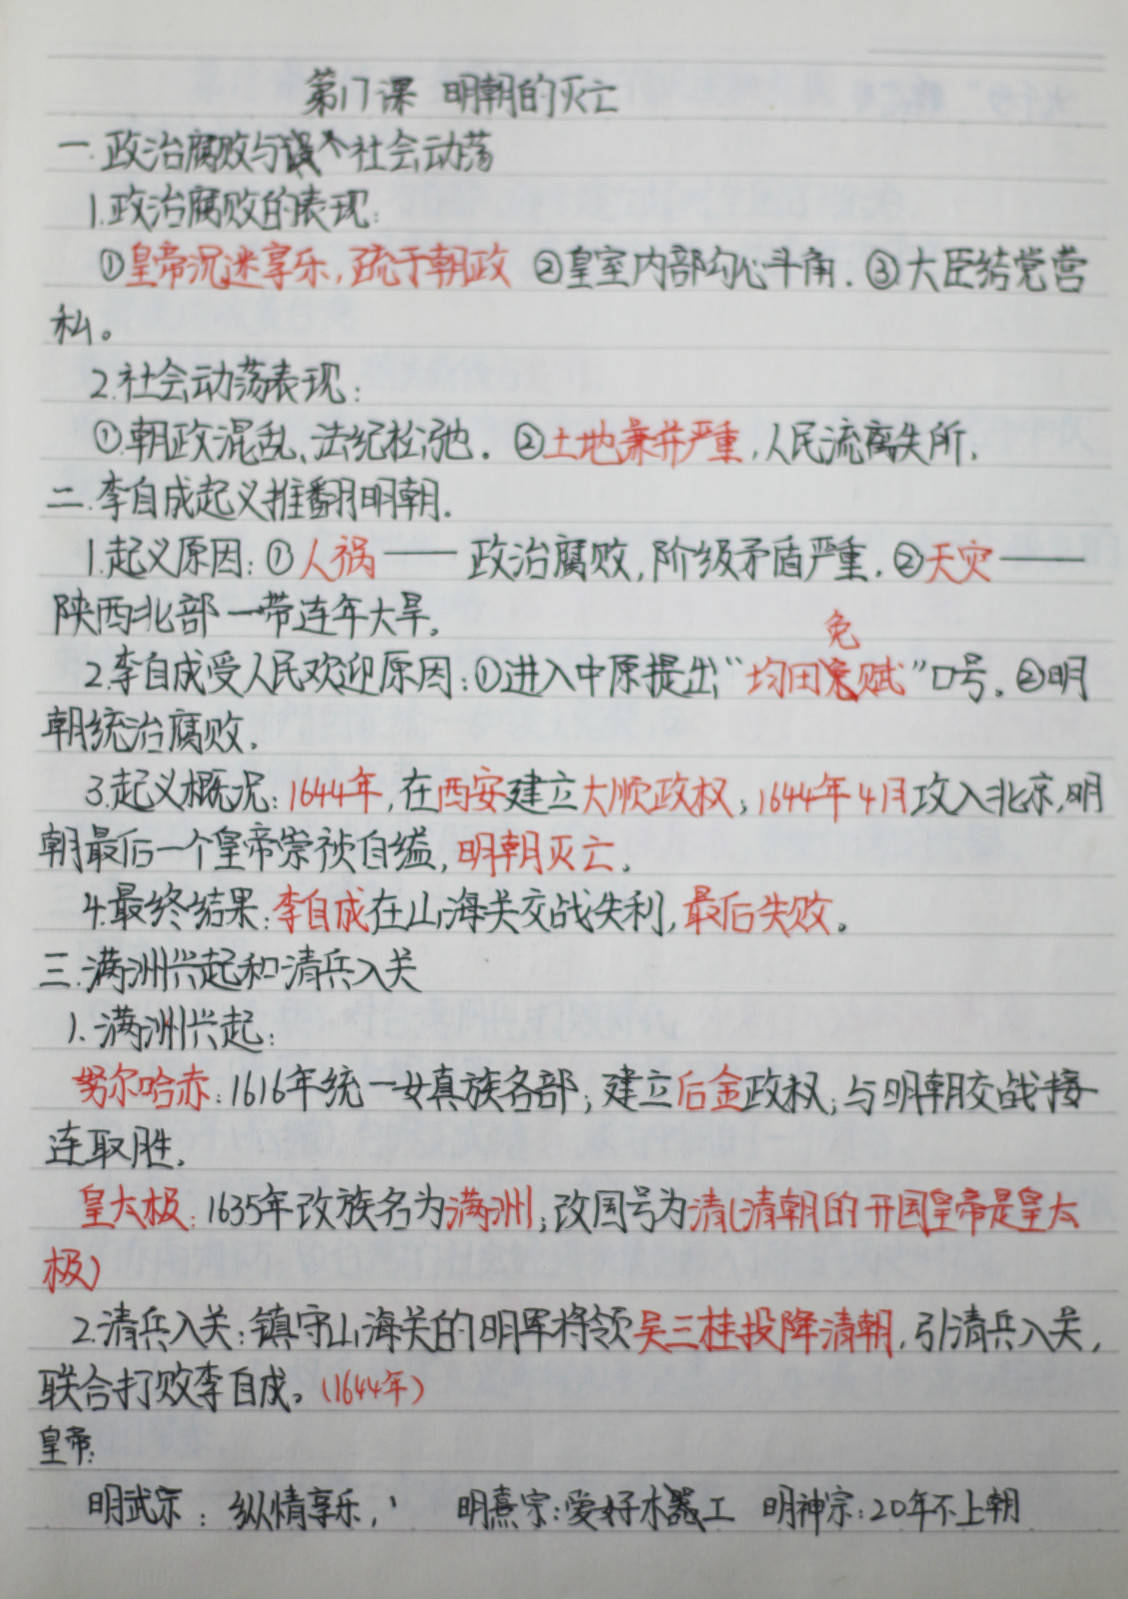 第17课 明朝的灭亡
一.政治腐败与社会动荡
1.政治腐败的表现:
①皇帝沉迷享乐,疏于朝政 ②皇室内部勾心斗角. ③大臣结党营
私。
2.社会动荡表现:
①.朝政混乱、法纪松弛. ②土地兼并严重,人民流离失所.
二.李自成起义推翻明朝.
1.起义原因:①人祸——政治腐败,阶级矛盾严重.②天灾——
陕西北部一带连年大旱.
免
2.李自成受人民欢迎原因:①进入中原提出“均田赋”口号。②明
朝统治腐败.
3.起义概况:1644年,在西安建立大顺政权;1644年4月攻入北京,明
朝最后一个皇帝崇祯自缢,明朝灭亡.
4.最终结果:李自成在山海关交战失利,最后失败。
三.满洲兴起和清兵入关
1.满洲兴起:
努尔哈赤:1616年统一女真族各部;建立后金政权;与明朝交战接
连取胜.
皇太极:1635年改族名为满洲;改国号为清(清朝的开国皇帝是皇太
极)
2.清兵入关:镇守山海关的明军将领吴三桂投降清朝,引清兵入关,
联合打败李自成。(1644年)
皇帝:
明武宗: 纵情享乐, 明熹宗:爱好木工 明神宗:20年不上朝